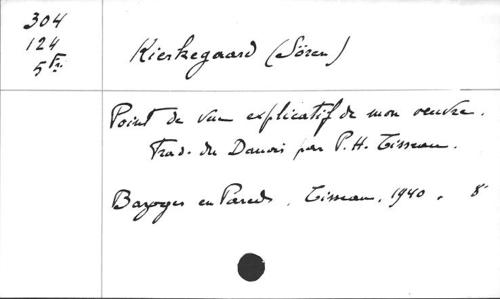 304
124
5 Fr.
Kierkegaard (Sören)
Point de vue explicatif de mon oeuvre.
Trad. du Danois par P.H. Tisseau.
Bazoges en Pareds, Tisseau, 1940. 8°